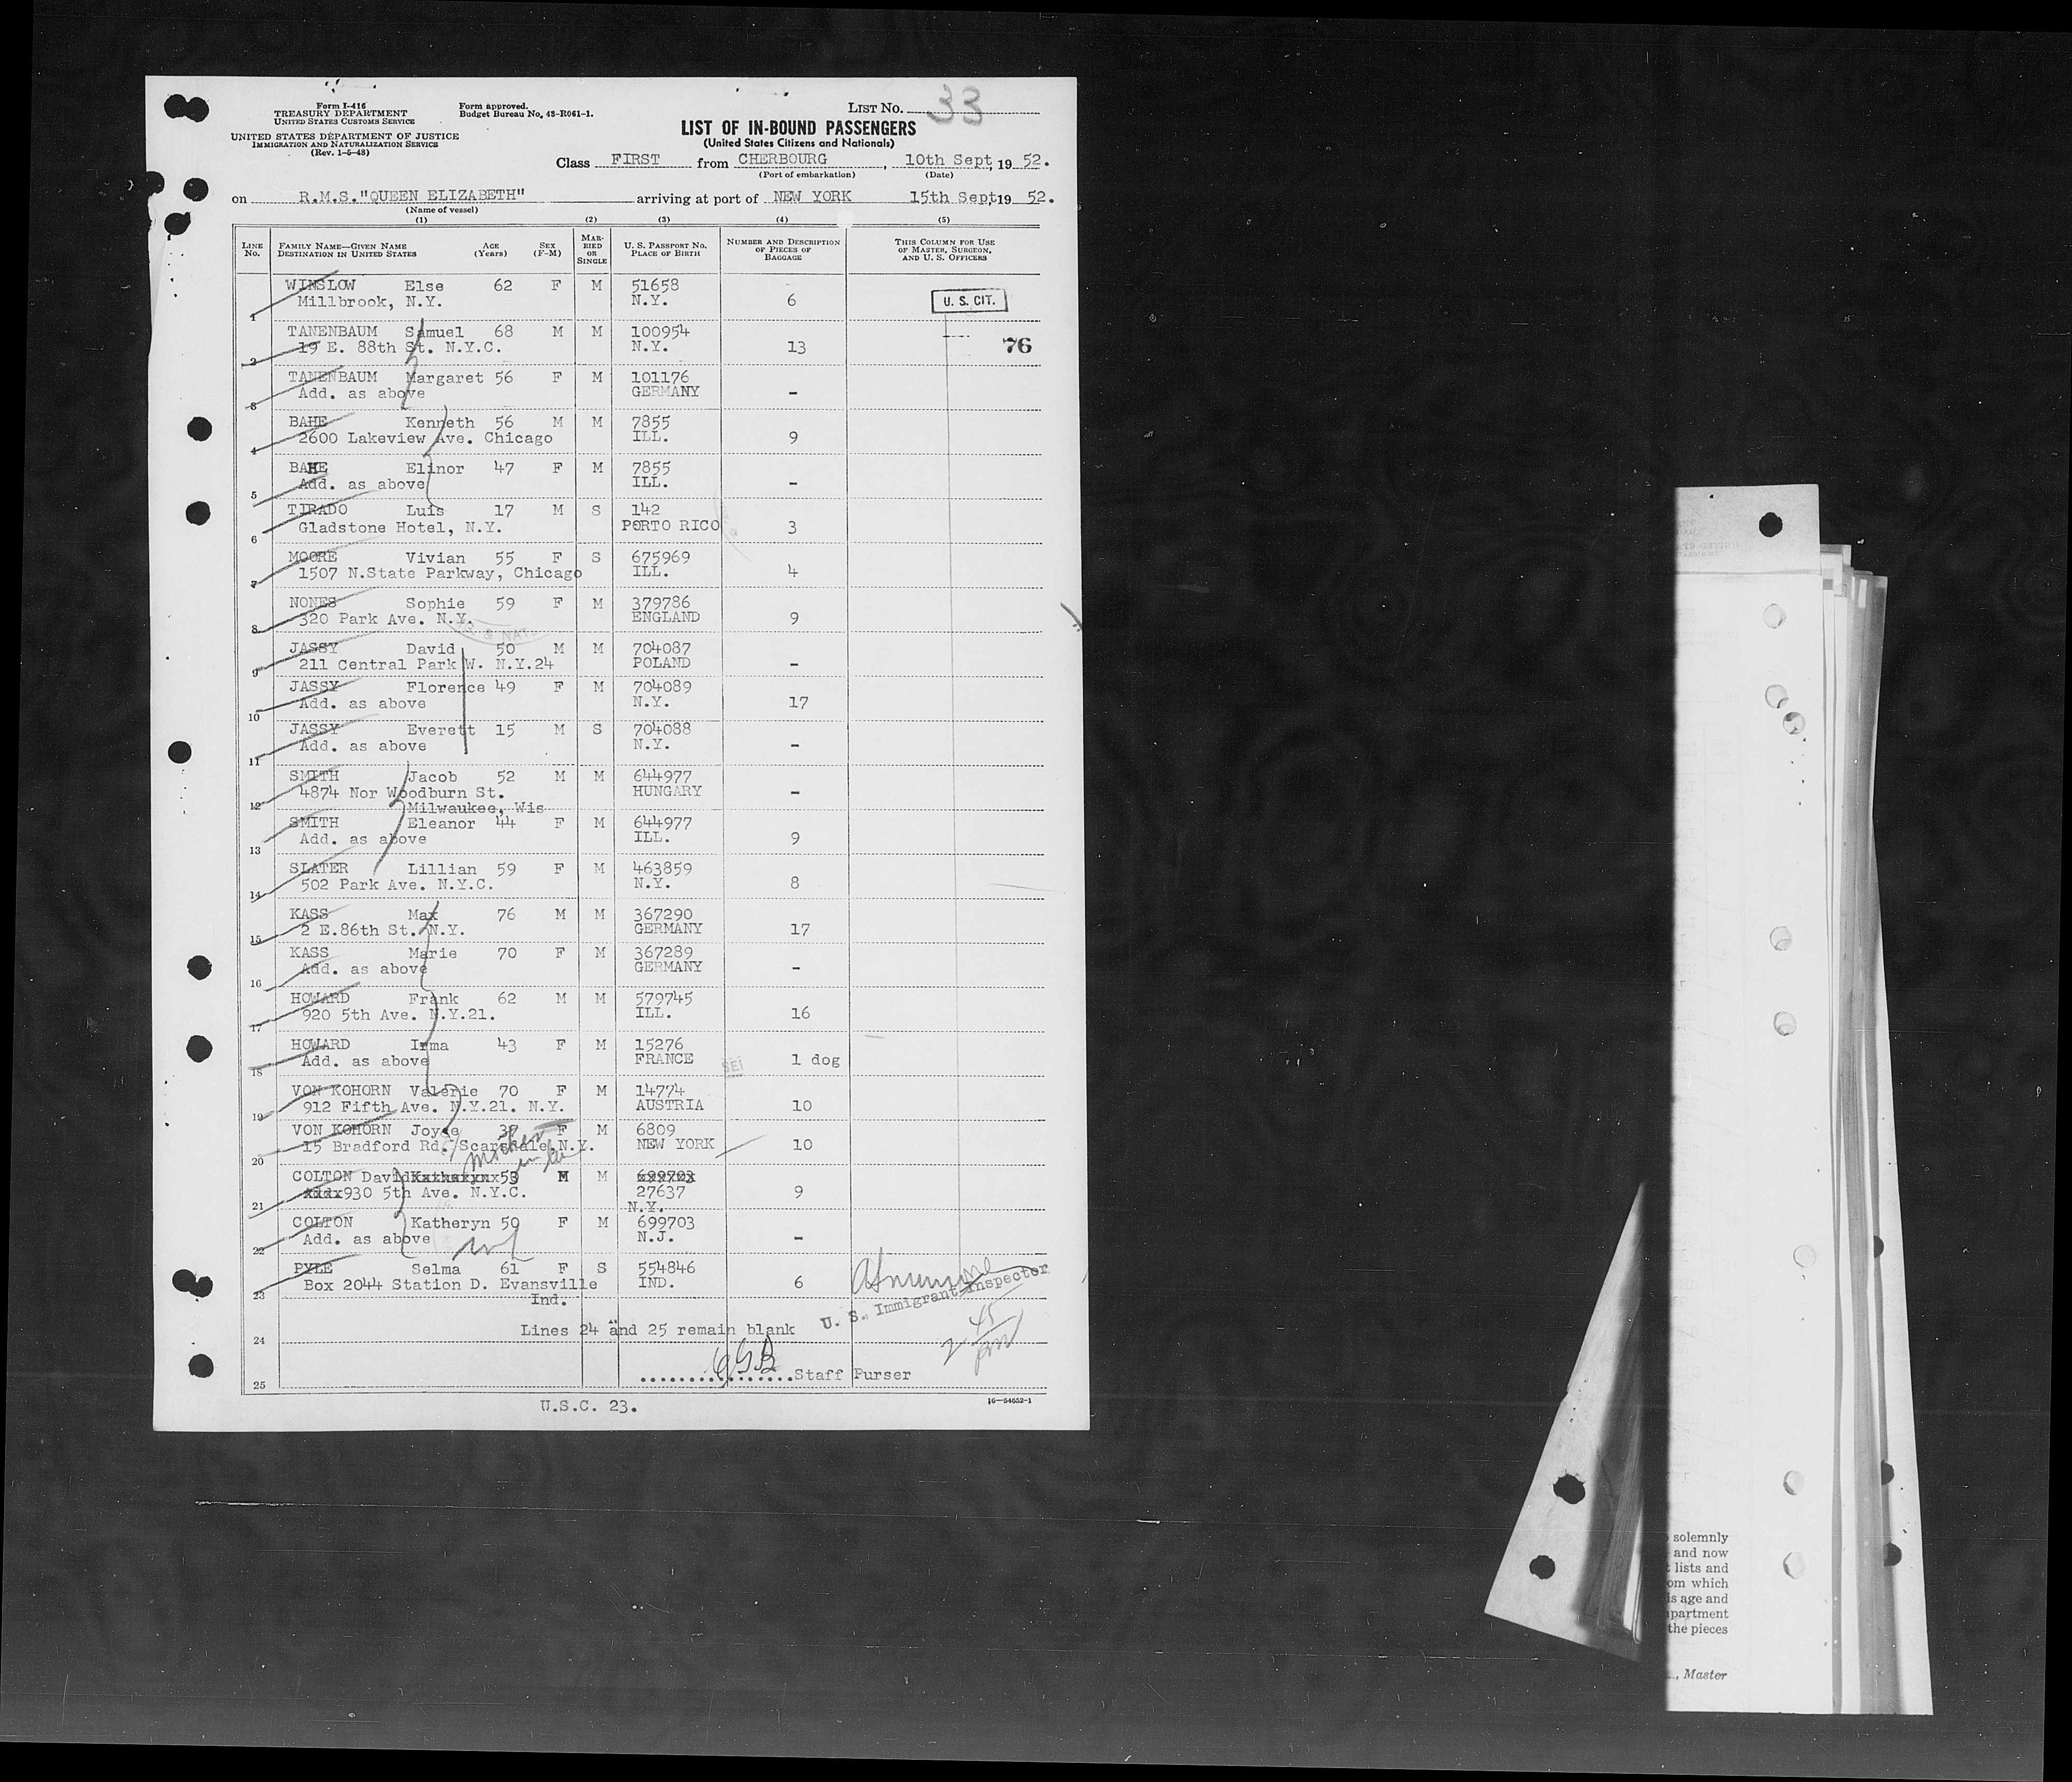 Form I-416
TREASURY DEPARTMENT
UNITED STATES CUSTOMS SERVICE
UNITED STATES DEPARTMENT OF JUSTICE
IMMIGRATION AND NATURALIZATION SERVICE
(Rev. 1-5-48)
Form approved.
Budget Bureau No. 43-R061-1.
LIST NO. 33
LIST OF IN-BOUND PASSENGERS
(United States Citizens and Nationals)
Class FIRST from CHERBOURG, 10th Sept, 1952.
(Port of embarkation) (Date)
on R.M.S."QUEEN ELIZABETH" arriving at port of NEW YORK 15th Sept, 1952.
(Name of vessel)
(1) (2) (3) (4) (5)
LINE NO. FAMILY NAME—GIVEN NAME DESTINATION IN UNITED STATES AGE (Years) SEX (F-M) MARRIED OR SINGLE U. S. PASSPORT NO. PLACE OF BIRTH NUMBER AND DESCRIPTION OF PIECES OF BAGGAGE THIS COLUMN FOR USE OF MASTER, SURGEON, AND U. S. OFFICERS
WINSLOW Else 62 F M 51658
1 Millbrook, N.Y. N.Y. 6 U. S. CIT.
TANENBAUM Samuel 68 M M 100954
2 19 E. 88th St. N.Y.C. N.Y. 13 76
TANENBAUM Margaret 56 F M 101176
3 Add. as above GERMANY -
BAHE Kenneth 56 M M 7855
4 2600 Lakeview Ave. Chicago ILL. 9
BAHE Elinor 47 F M 7855
5 Add. as above ILL. -
TIRADO Luis 17 M S 142
6 Gladstone Hotel, N.Y. PORTO RICO 3
MOORE Vivian 55 F S 675969
7 1507 N.State Parkway, Chicago ILL. 4
NONES Sophie 59 F M 379786
8 320 Park Ave. N.Y. ENGLAND 9
JASSY David 50 M M 704087
9 211 Central Park W. N.Y.24 POLAND -
JASSY Florence 49 F M 704089
10 Add. as above N.Y. 17
JASSY Everett 15 M S 704088
11 Add. as above N.Y. -
SMITH Jacob 52 M M 644977
12 4874 Nor Woodburn St. HUNGARY -
Milwaukee, Wis
SMITH Eleanor 44 F M 644977
13 Add. as above ILL. 9
SLATER Lillian 59 F M 463859
14 502 Park Ave. N.Y.C. N.Y. 8
KASS Max 76 M M 367290
15 2 E.86th St. N.Y. GERMANY 17
KASS Marie 70 F M 367289
16 Add. as above GERMANY -
HOWARD Frank 62 M M 579745
17 920 5th Ave. N.Y.21. ILL. 16
HOWARD Irma 43 F M 15276
18 Add. as above FRANCE 1 dog
VON KOHORN Valerie 70 F M 14774
19 912 Fifth Ave. N.Y.21. N.Y. AUSTRIA 10
VON KOHORN Joyce 37 F M 6809
20 15 Bradford Rd. Scarsdale N.Y. NEW YORK 10
mother in law
COLTON David 53 M M 699703
21 930 5th Ave. N.Y.C. 27637 9
N.Y.
COLTON Katheryn 50 F M 699703
22 Add. as above N.J. -
PYLE Selma 61 F S 554846
23 Box 2044 Station D. Evansville IND. 6
Ind.
U. S. Immigrant Inspector
24 Lines 24 and 25 remain blank
25 Staff Purser
U.S.C. 23.
16—54652-1
solemnly
and now
lists and
om which
is age and
partment
the pieces
, Master